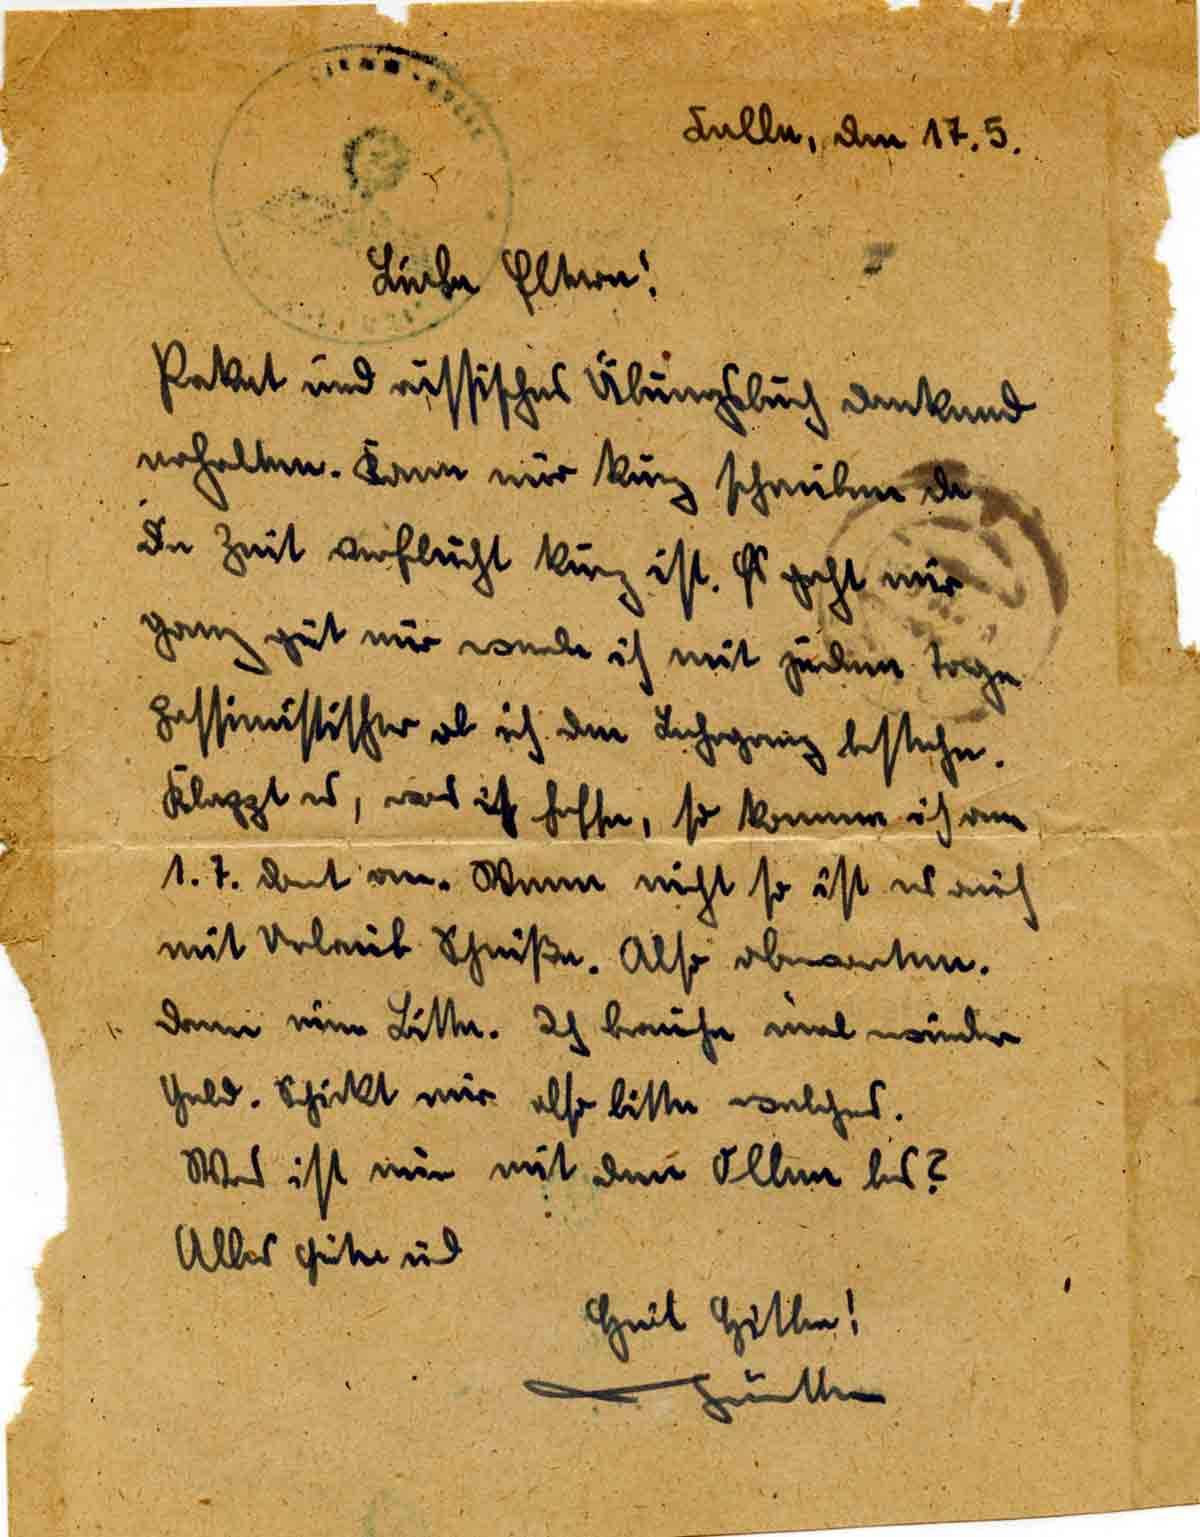 den 17.5.
Liebe Eltern!
Paket und russisches Übungsbuch dankend
erhalten. Kann nur kurz schreiben da
die Zeit verflucht kurz ist. Es geht mir
ganz gut nur werde ich mit jedem Tage
pessimistischer ob ich den Lehrgang bestehe.
Klappt es, was ich hoffe, so komme ich am
1.7. dort an. Wenn nicht so ist es auch
mit Urlaub Scheiße. Also abwarten.
Dann eine Bitte. Ich brauche mal wieder
Geld. Schickt mir also bitte welches.
Was ist nur mit den Ollen los?
Alles Gute und
Heil Hitler!
Günther